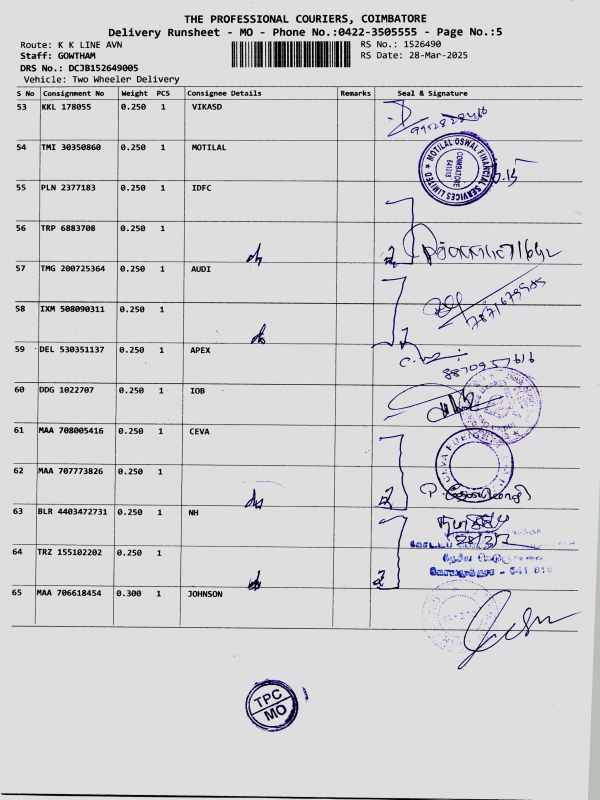 THE PROFESSIONAL COURIERS, COIMBATORE
Delivery Runsheet - MO - Phone No.:0422-3505555 - Page No.:5
Route: K K LINE AVN RS No.: 1526490
Staff: GOWTHAM RS Date: 28-Mar-2025
DRS No.: DCJB152649005
Vehicle: Two Wheeler Delivery
S No Consignment No Weight PCS Consignee Details Remarks Seal & Signature
53 KKL 178055 0.250 1 VIKASD
54 TMI 30350860 0.250 1 MOTILAL
MOTILAL OSWAL FINANCIAL SERVICES LIMITED
COIMBATORE
55 PLN 2377183 0.250 1 IDFC
56 TRP 6883708 0.250 1
57 TMG 200725364 0.250 1 AUDI
58 IXM 508090311 0.250 1
59 DEL 530351137 0.250 1 APEX
60 DDG 1022707 0.250 1 IOB
61 MAA 708005416 0.250 1 CEVA
62 MAA 707773826 0.250 1
63 BLR 4403472731 0.250 1 NH
64 TRZ 155102202 0.250 1
65 MAA 706618454 0.300 1 JOHNSON
TPC
MO